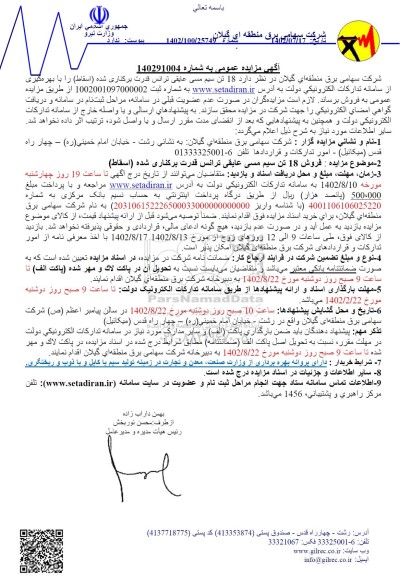 باسمه تعالی
جمهوری اسلامی ایران
وزارت نیرو
شرکت سهامی برق منطقه ای گیلان
تاریخ: 1402/07/17 شماره: 1402/100/25749 پیوست: ندارد
آگهی مزایده عمومی به شماره 140291004
شرکت سهامی برق منطقه‌ای گیلان در نظر دارد 18 تن سیم مسی عایقی ترانس قدرت برکناری شده (اسقاط) را با بهره‌گیری
از سامانه تدارکات الکترونیکی دولت به آدرس www.setadiran.ir به شماره ثبت 1002001097000002 از طریق مزایده
عمومی به فروش برساند. لازم است مزایده‌گران در صورت عدم عضویت قبلی در سامانه، مراحل ثبت‌نام در سامانه و دریافت
گواهی امضای الکترونیکی را جهت شرکت در مزایده محقق سازند. به پیشنهادهای ارسالی و یا واصله خارج از سامانه تدارکات
الکترونیکی دولت و همچنین به پیشنهادهایی که بعد از انقضای مدت مقرر ارسال و یا واصل شود، ترتیب اثر داده نخواهد شد.
سایر اطلاعات مورد نیاز به شرح ذیل اعلام می‌گردد:
1-نام و نشانی مزایده گزار : شرکت سهامی برق منطقه‌ای گیلان: به نشانی رشت - خیابان امام خمینی(ره) – چهار راه
قدس (میکائیل) – امور تدارکات و قراردادها تلفن 6-01333325001
2-موضوع مزایده : فروش 18 تن سیم مسی عایقی ترانس قدرت برکناری شده (اسقاط)
3-زمان، مهلت، مبلغ و محل دریافت اسناد و بازدید: متقاضیان می‌توانند از تاریخ درج آگهی تا ساعت 19 روز چهارشنبه
مورخه 1402/8/10 به سامانه تدارکات الکترونیکی دولت به آدرس www.setadiran.ir مراجعه و با پرداخت مبلغ
500،000 (پانصد هزار) ریال از طریق درگاه پرداخت اینترنتی به حساب نسیم بانک مرکزی به شماره
4001106106025220 (با شناسه واریز) به نام شرکت سهامی برق
منطقه‌ای گیلان، برای خرید اسناد مزایده فوق اقدام نمایند. ضمناً توصیه می‌شود قبل از ارائه پیشنهاد قیمت، از کالای موضوع
مزایده بازدید به عمل آید و در صورت عدم بازدید، هیچ گونه ادعای مالی، قراردادی و حقوقی پذیرفته نخواهد شد. بازدید
از کالای فوق، طی ساعات 9 الی 12 روزهای زوج از مورخ 1402/8/13 تا 1402/8/17 با اخذ معرفی نامه از امور
تدارکات و قراردادهای شرکت برق منطقه‌ای گیلان امکان پذیر است.
4-نوع و مبلغ تضمین شرکت در فرآیند ارجاع کار: ضمانت نامه شرکت در مزایده، در اسناد مزایده تعیین شده است که به
صورت ضمانتنامه بانکی معتبر می‌باشد و متقاضیان می‌بایست نسبت به تحویل آن در پاکت لاک و مهر شده (پاکت الف) تا
ساعت 9 صبح روز دوشنبه مورخ 1402/8/22 به دبیرخانه شرکت برق منطقه‌ای گیلان اقدام نمایند.
5-مهلت بارگذاری اسناد و ارائه پیشنهادها از طریق سامانه تدارکات الکترونیک دولت: تا ساعت 9 صبح روز دوشنبه
مورخ 1402/8/22 می‌باشد.
6-تاریخ و محل گشایش پیشنهادها: ساعت 10 صبح روز دوشنبه مورخ 1402/8/22 در سالن پیامبر اعظم (ص) شرکت
سهامی برق منطقه‌ای گیلان واقع در رشت - خیابان امام خمینی(ره) – چهار راه قدس (میکائیل)
تذکر مهم: پیشنهاد دهندگان باید ضمن بارگذاری پاکت (الف) و سایر مدارک مورد نیاز در سامانه تدارکات الکترونیکی دولت
در مهلت مقرر، نسبت به تحویل اصل پاکت الف (ضمانتنامه) مطابق شرایط درج شده در اسناد مزایده، در پاکت لاک و مهر
شده تا ساعت 9 صبح روز دوشنبه مورخ 1402/8/22 به دبیرخانه شرکت سهامی برق منطقه‌ای گیلان اقدام نمایند.
7- شرایط خریدار : دارای پروانه بهره برداری از وزارت صنعت، معدن و تجارت در زمینه تولید سیم یا کابل و یا ذوب و ریخته‌گری
8- سایر اطلاعات و جزئیات در اسناد مزایده درج شده است.
9-اطلاعات تماس سامانه ستاد جهت انجام مراحل ثبت نام و عضویت در سایت سامانه (www.setadiran.ir): تلفن
مرکز راهبری و پشتیبانی، 1456 می‌باشد.
بهمن داراب زاده
ازطرف-محسن نوربخش
رئیس هیأت مدیره و مدیرعامل
آدرس: رشت - چهارراه قدس - صندوق پستی (413353874) کد پستی (4137718775)
تلفن: 6-33325001 فاکس: 33321067
وب سایت: www.gilrec.co.ir
ایمیل: info@gilrec.co.ir